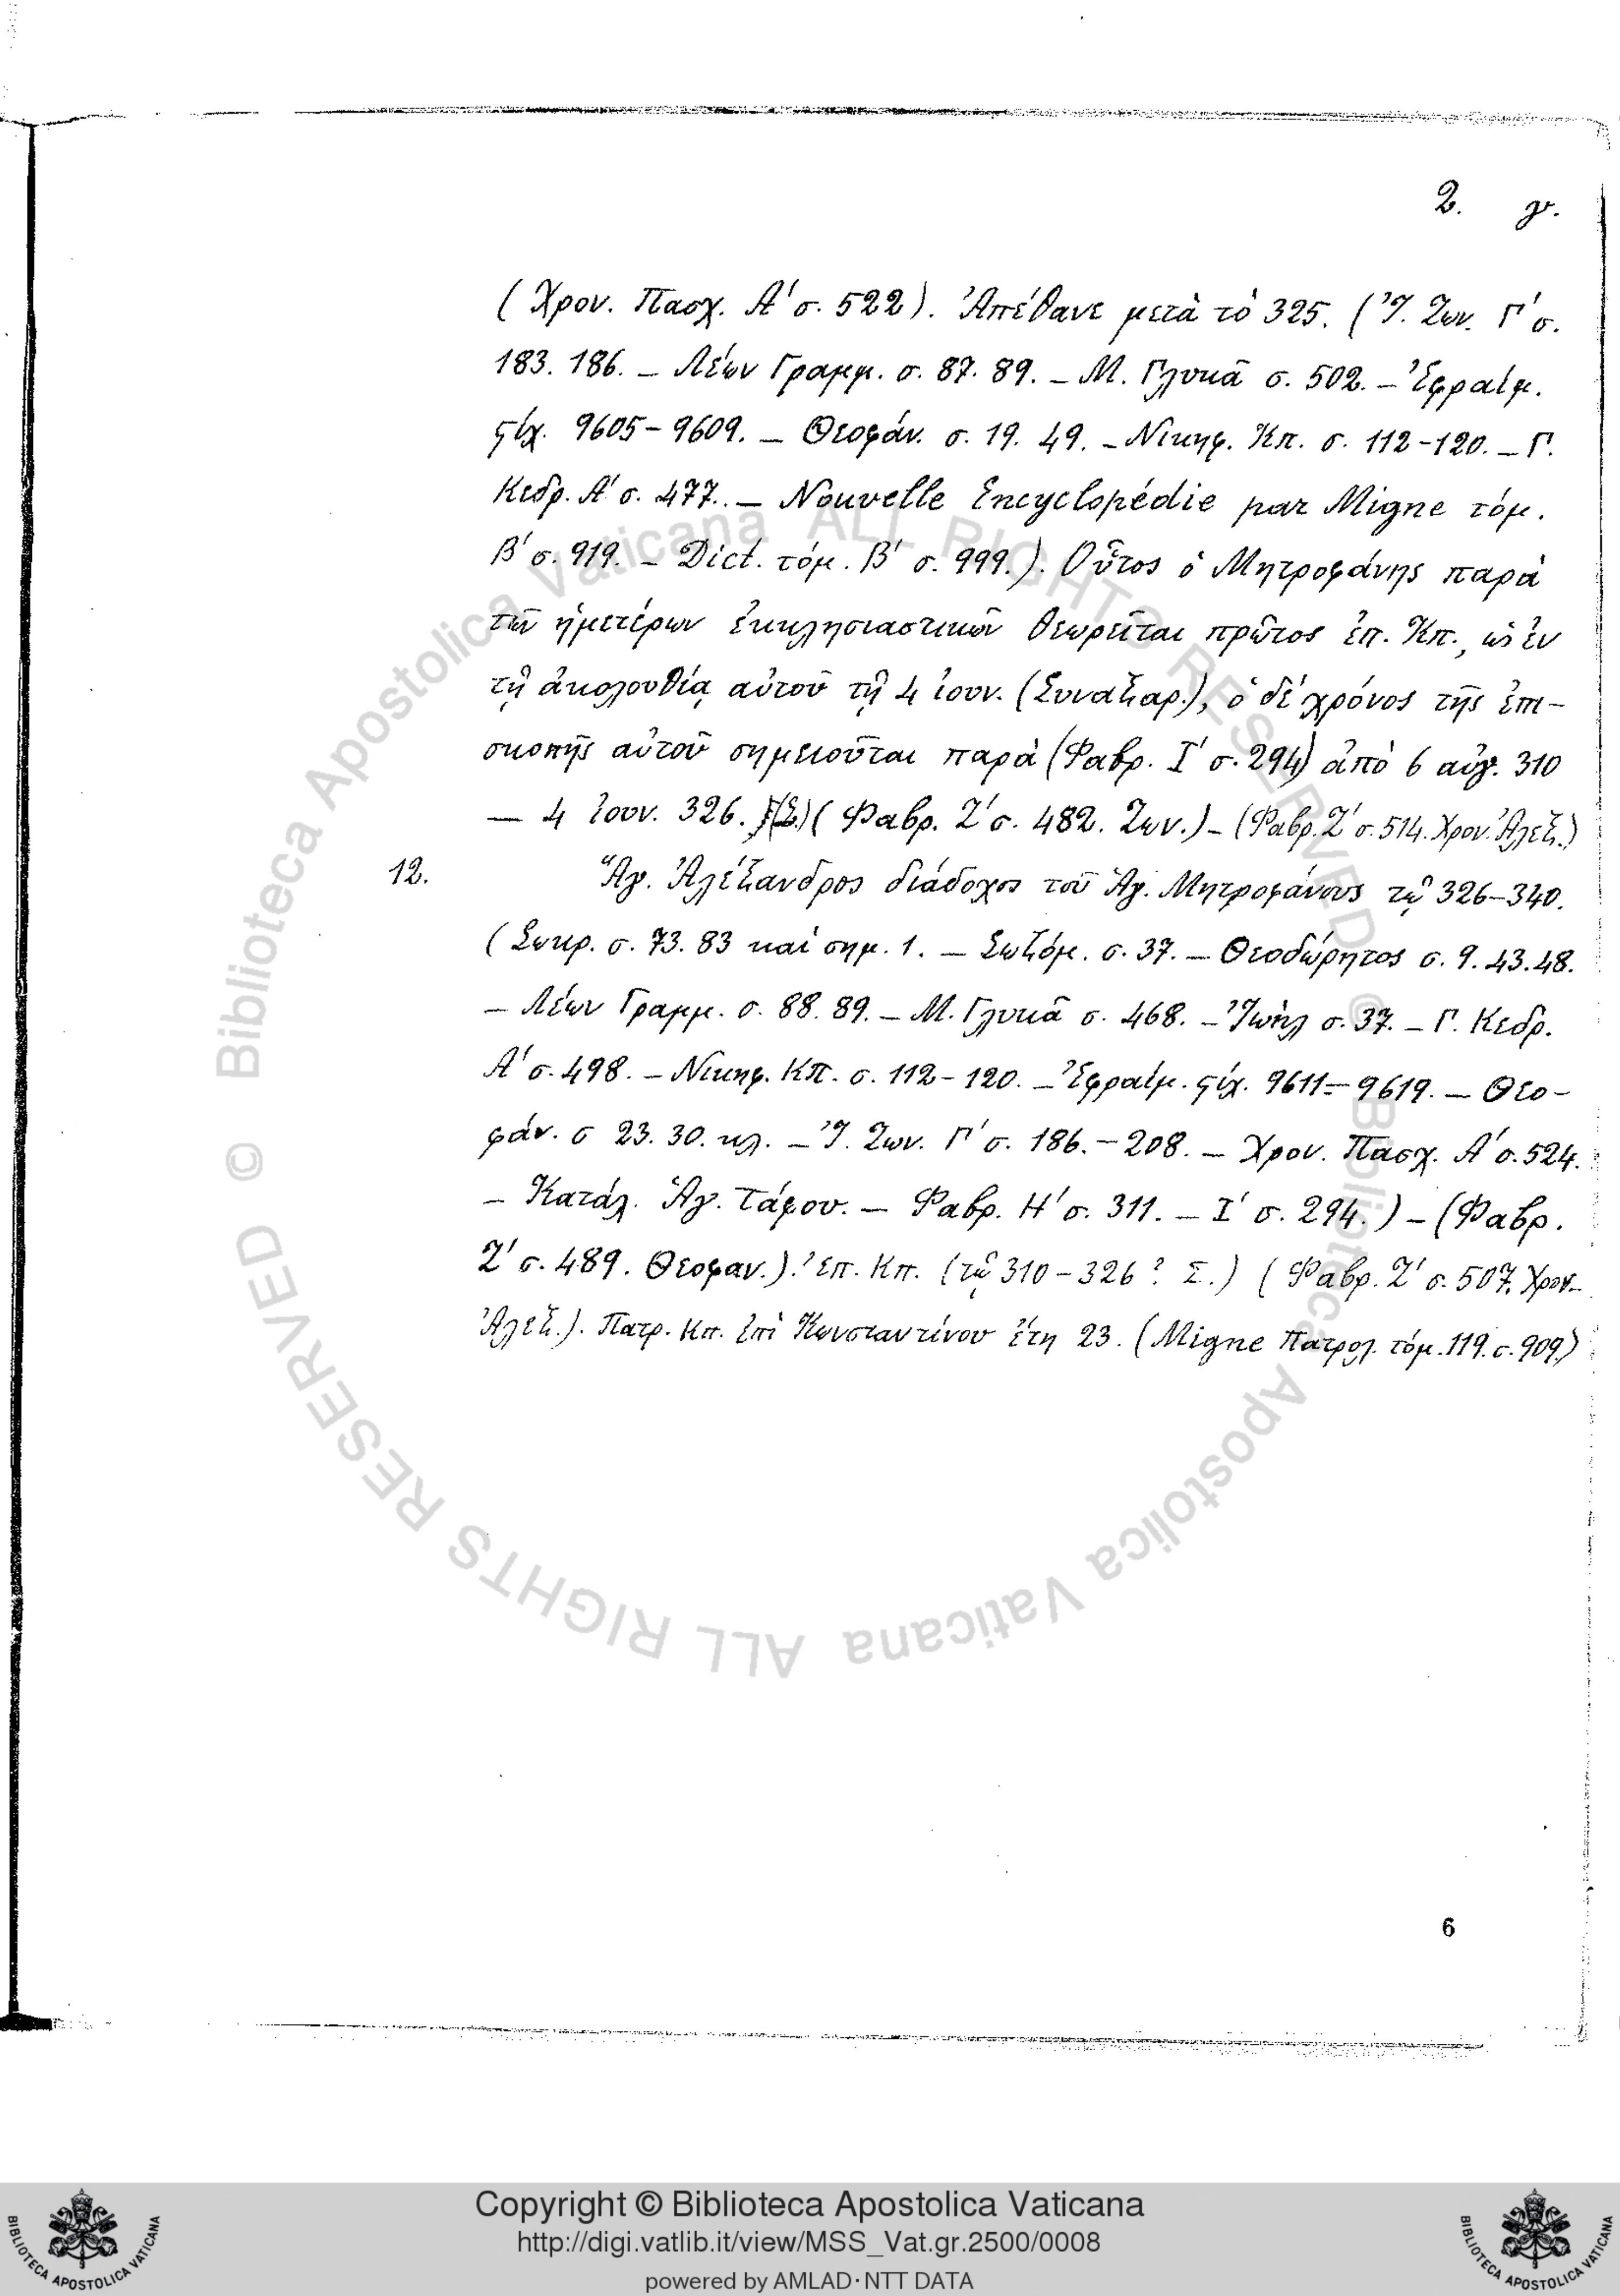 2. γ.
(Χρον. Πασχ. Α' σ. 522). Ἀπέθανε μετὰ τὸ 325. (Ἰ. Ζων. Γ' σ.
183. 186. — Λέων Γραμμ. σ. 87. 89. — Μ. Γλυκᾶ σ. 502. — Ἐφραίμ.
ϛίχ. 9605-9609. — Θεοφάν. σ. 19. 49. — Νικηφ. Κπ. σ. 112-120. — Γ.
Κεδρ. Α' σ. 477. — Nouvelle Encyclopédie par Migne τόμ.
Β' σ. 919. — Dict. τόμ. Β' σ. 999.). Οὗτος ὁ Μητροφάνης παρὰ
τῶν ἡμετέρων ἐκκλησιαστικῶν θεωρεῖται πρῶτος ἐπ. Κπ., ὡς ἐν
τῇ ἀκολουθίᾳ αὐτοῦ τῇ 4 ἰουν. (Συναξαρ.), ὁ δὲ χρόνος τῆς ἐπι-
σκοπῆς αὐτοῦ σημειοῦται παρὰ (Φαβρ. Ι' σ. 294) ἀπὸ 6 αὐγ. 310
— 4 ἰουν. 326. (Σ.) (Φαβρ. Ζ' σ. 482. Ζων.) — (Φαβρ. Ζ' σ. 514. Χρον. Ἀλεξ.)
12. Ἅγ. Ἀλέξανδρος διάδοχος τοῦ Ἁγ. Μητροφάνους τῷ 326-340.
(Σωκρ. σ. 73. 83 καὶ σημ. 1. — Σωζόμ. σ. 37. — Θεοδώρητος σ. 9. 43. 48.
— Λέων Γραμμ. σ. 88. 89. — Μ. Γλυκᾶ σ. 468. — Ἰωὴλ σ. 37. — Γ. Κεδρ.
Α' σ. 498. — Νικηφ. Κπ. σ. 112-120. — Ἐφραίμ. ϛίχ. 9611-9619. — Θεο-
φάν. σ 23. 30. κλ. — Ἰ. Ζων. Γ' σ. 186. — 208. — Χρον. Πασχ. Α' σ. 524.
— Κατάλ. Ἁγ. Τάφου. — Φαβρ. Η' σ. 311. — Ι' σ. 294.) — (Φαβρ.
Ζ' σ. 489. Θεοφαν.). Ἐπ. Κπ. (τῷ 310-326? Σ.) (Φαβρ. Ζ' σ. 507. Χρον.
Ἀλεξ.). Πατρ. Κπ. ἐπὶ Κωνσταντίνου ἔτη 23. (Migne Πατρολ. τόμ. 119. σ. 909.)
6
© Biblioteca Apostolica Vaticana ALL RIGHTS RESERVED
© Biblioteca Apostolica Vaticana ALL RIGHTS RESERVED
BIBLIOTECA APOSTOLICA VATICANA
Copyright © Biblioteca Apostolica Vaticana
http://digi.vatlib.it/view/MSS_Vat.gr.2500/0008
powered by AMLAD·NTT DATA
BIBLIOTECA APOSTOLICA VATICANA